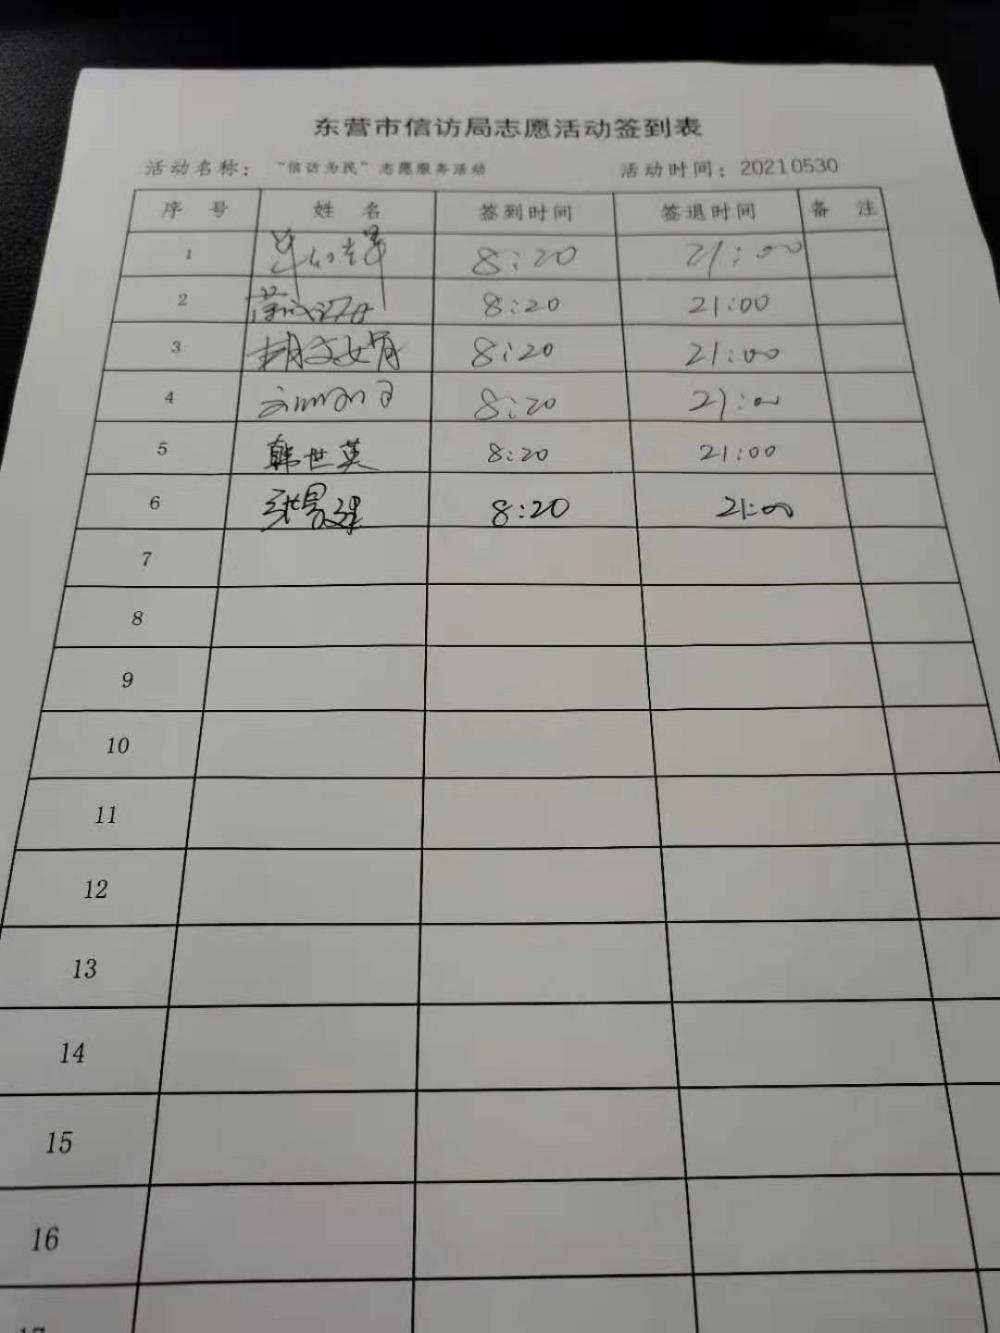 东营市信访局志愿活动签到表
活动名称：“信访为民”志愿服务活动 活动时间：20210530
序 号 姓 名 签到时间 签退时间 备 注
1 8:20 21:00
2 8:20 21:00
3 胡文婧 8:20 21:00
4 8:20 21:00
5 韩世英 8:20 21:00
6 8:20 21:00
7
8
9
10
11
12
13
14
15
16
17